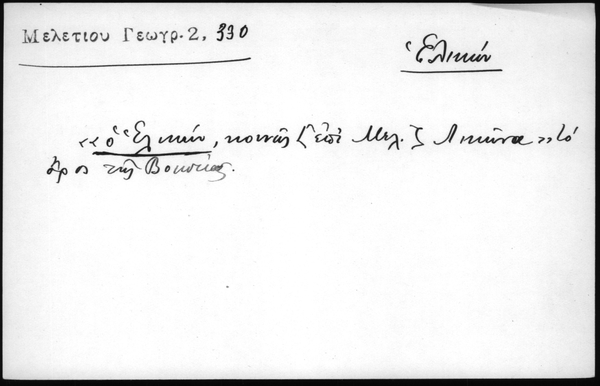 Μελετιου Γεωγρ. 2, 330
Ἑλικών
«ὁ Ἑλικών, κοινῶς [ἐπὶ Μελ.] Λικῶνα» τό
ὄρος τῆς Βοιωτίας.